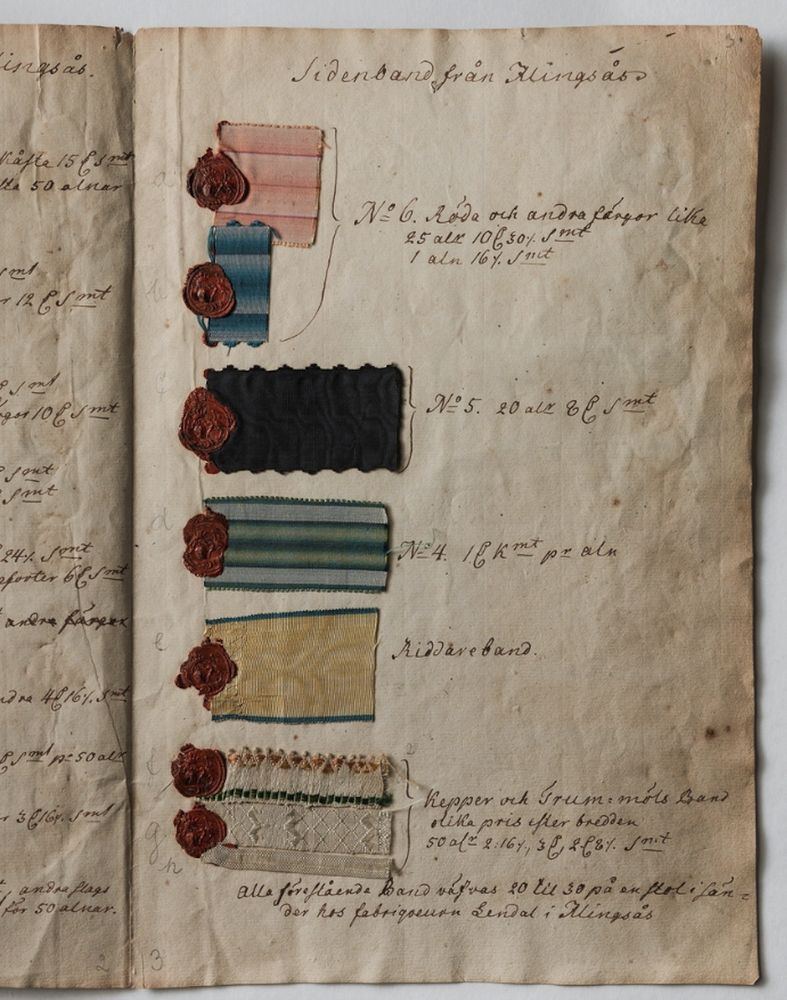 ingsås.
15 ₤ Smt
50 alnar
Smt
12 ₤ Smt
Smt
10 ₤ Smt
₤ Smt
₤ Smt
24/. Smt
6 ₤ Smt
andra färger
4 ₤ 16/. Smt
₤ Smt pr 50 alr
3 ₤ 16/. Smt
andra slags
för 50 alnar.
2
3
Sidenband från Alingsås.
a
No 6. Röda och andra färgor lika
25 alr 10 ₤ 30/. Smt
1 aln 16/. Smt
b
c
No 5. 20 alr 8 ₤ Smt
d
No 4. 1 ₤ Kmt pr aln
e
Riddareband.
f
g
h
Kepper och Trum=möls Band
olika pris efter bredden
50 alr 2:16/., 3 ₤, 2 ₤ 8/. Smt
alla föreslående Bandväfvas 20 til 30 på en stol i sän=
der hos fabriqveurn Lendal i Alingsås
3